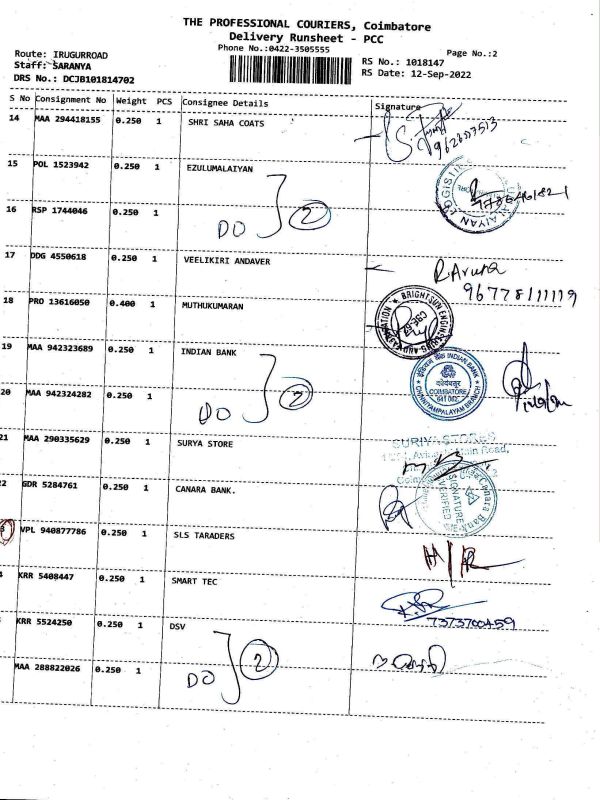 THE PROFESSIONAL COURIERS, Coimbatore
Delivery Runsheet - PCC
Phone No.:0422-3505555
Page No.:2
Route: IRUGURROAD
RS No.: 1018147
Staff: SARANYA
RS Date: 12-Sep-2022
DRS No.: DCJB101814702
S No Consignment No Weight PCS Consignee Details Signature
14 MAA 294418155 0.250 1 SHRI SAHA COATS
15 POL 1523942 0.250 1 EZULUMALAIYAN
16 RSP 1744046 0.250 1 DO 2
17 DDG 4550618 0.250 1 VEELIKIRI ANDAVER R.Aruna
96778111119
18 PRO 13616050 0.400 1 MUTHUKUMARAN
BRIGHTSUN
19 MAA 942323689 0.250 1 INDIAN BANK
INDIAN BANK
COIMBATORE
641 062
CHINNIYAMPALAYAM BRANCH
20 MAA 942324282 0.250 1 DO 2
21 MAA 290335629 0.250 1 SURYA STORE
SURIYA STORES
Main Road,
22 GDR 5284761 0.250 1 CANARA BANK.
Canara Bank
SIGNATURE
VERIFIED
VPL 940877786 0.250 1 SLS TARADERS
KRR 5408447 0.250 1 SMART TEC
7373700459
KRR 5524250 0.250 1 DSV
MAA 288822026 0.250 1 DO 2